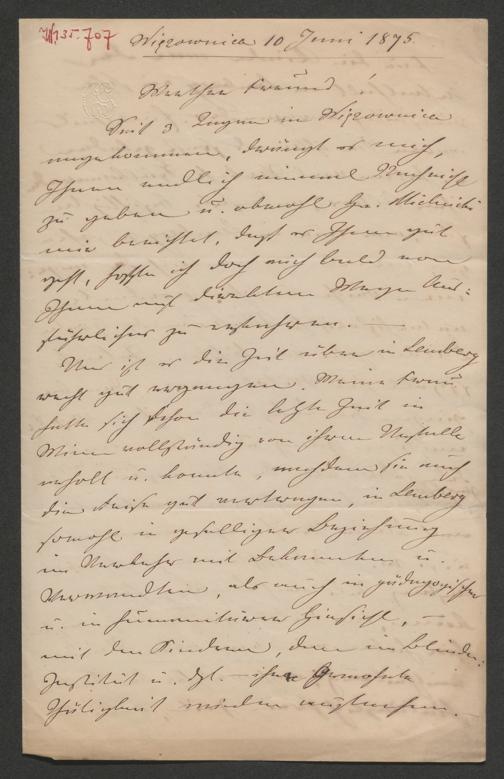 W135.707
Wiązownica 10 Juni 1875.
Werther Freund!
Seit 3 Tagen in Wiązownica
angekommen, drängt es mich,
Ihnen endlich einmal Nachricht
zu geben u. obwohl Hr. Mielnicki
mir berichtet, daß es Ihnen gut
geht, hoffte ich doch auch bald von
Ihnen auf direktem Wege Aus-
führliches zu erfahren. —
Uns ist es die Zeit über in Lemberg
recht gut ergangen. Meine Frau
hatte sich schon die letzte Zeit in
Wien vollständig von ihrem Anfalle
erholt u. konnte, nachdem sie auch
die Reise gut vertragen, in Lemberg
sowohl in geselliger Beziehung
im Verkehr mit Bekannten u.
Verwandten, als auch in pädagogischer
u. in humanitärer Hinsicht, —
mit den Kindern, dem Blinden-
Institut u. dgl. ihre gewohnte
Thätigkeit wieder aufnehmen. —